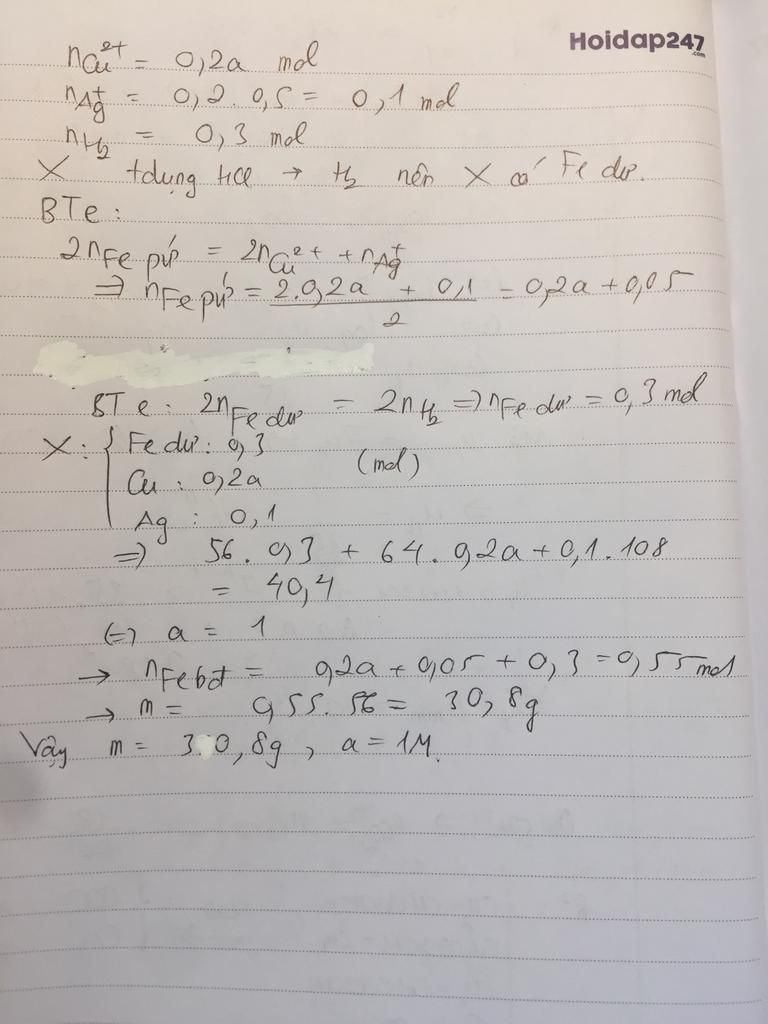 Hoidap247
.com
nCu²⁺ = 0,2a mol
nAg⁺ = 0,2.0,5 = 0,1 mol
nH₂ = 0,3 mol
X tdụng HCl → H₂ nên X có Fe dư.
BTe:
2nFe pứ = 2nCu²⁺ + nAg⁺
⇒ nFe pứ = (2.0,2a + 0,1)/2 = 0,2a + 0,05
BTe: 2nFe dư = 2nH₂ ⇒ nFe dư = 0,3 mol
X: { Fe dư: 0,3
Cu : 0,2a (mol)
Ag : 0,1
⇒ 56.0,3 + 64.0,2a + 0,1.108
= 40,4
⇔ a = 1
→ nFe bđ = 0,2a + 0,05 + 0,3 = 0,55 mol
→ m = 0,55.56 = 30,8g
Vậy m = 30,8g, a = 1M.